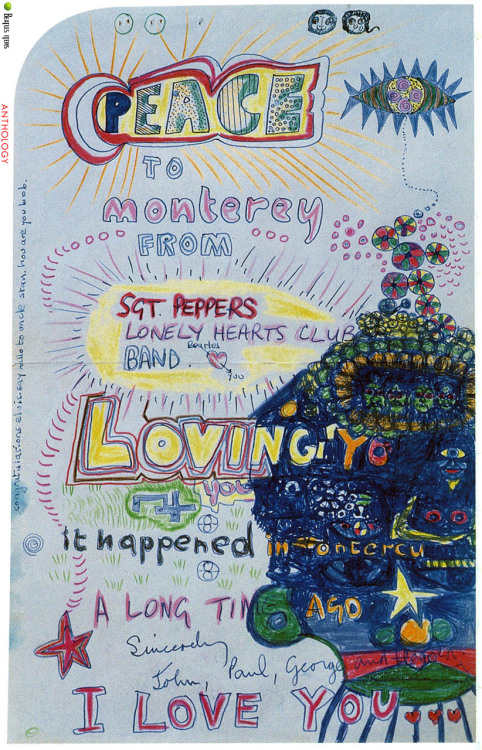 PEACE
TO
monterey
FROM
SGT. PEPPERS
LONELY HEARTS CLUB
BAND.
Beatles
you
LOVING, YO
you
it happened in Monterey
A LONG TIME AGO
Sincerely
John, Paul, George and Harold
I LOVE YOU
ANTHOLOGY
congratulacions elvis. say hello to uncle stan. how are you bob.